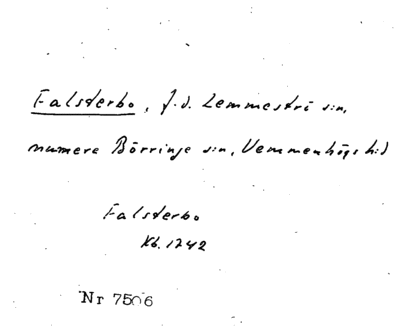 Falsterbo, f.d. Lemmeströ s:n,
numera Börringe s:n, Vemmenhögs h:d
Falsterbo
Kb. 1242
Nr 7506